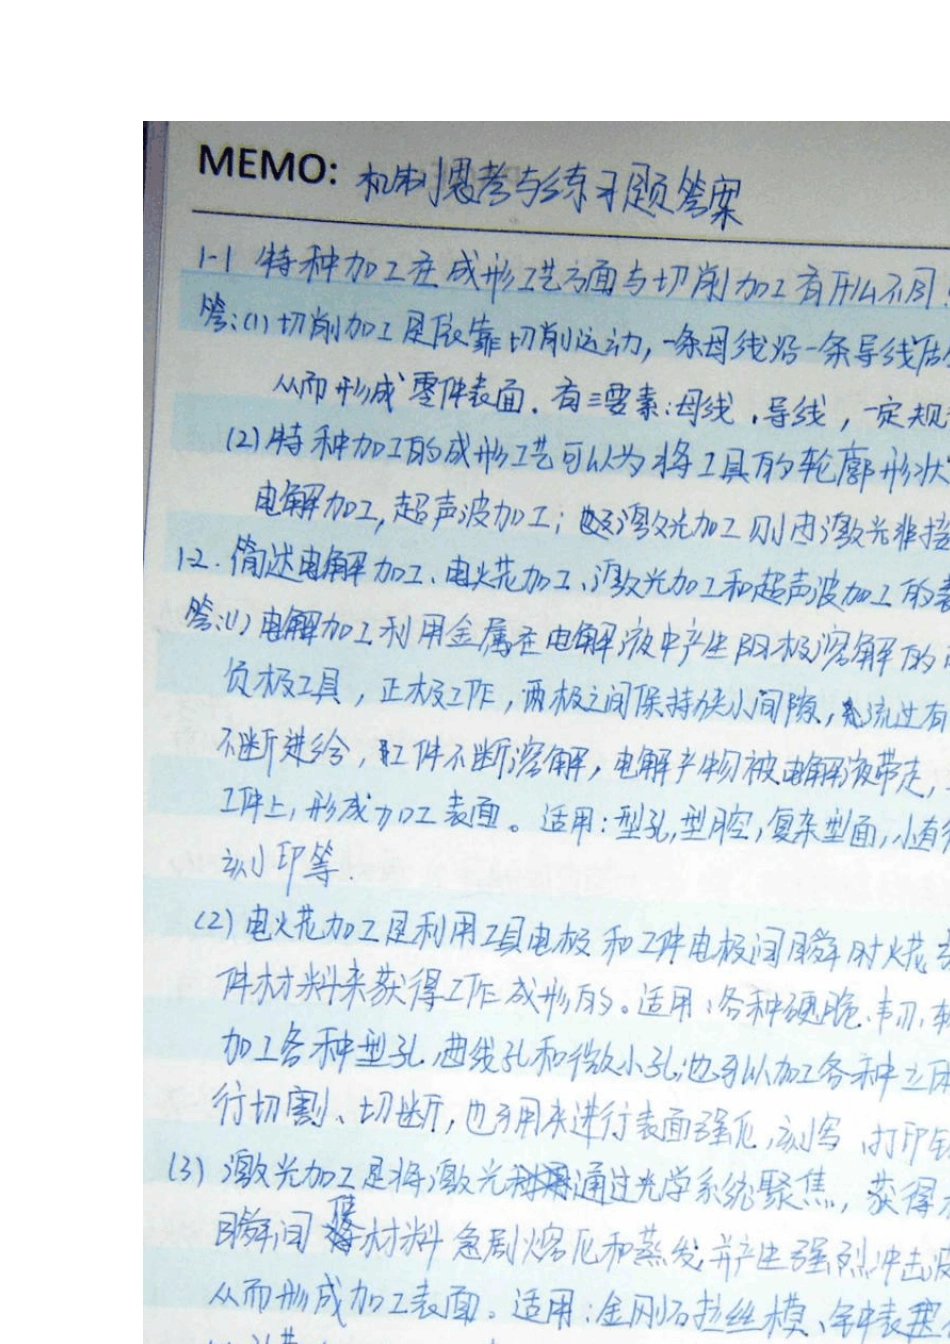 MEMO: 机制思考与练习题答案
1-1 特种加工在成形工艺方面与切削加工有什么不同
答:(1)切削加工是依靠切削运动,一条母线沿一条导线
从而形成零件表面.有三要素:母线、导线,一定规
(2)特种加工的成形工艺可以为将工具的轮廓形状
电解加工,超声波加工; 激光加工则由激光非接
1-2.简述电解加工、电火花加工、激光加工和超声波加工的表
答:(1)电解加工利用金属在电解液中产生阳极溶解的
负极工具,正极工件,两极之间保持狭小间隙, 流过有
不断进给,工件不断溶解,电解产物被电解液带走,
工件上,形成加工表面。适用:型孔,型腔,复杂型面,小直径
刻印等.
(2)电火花加工是利用工具电极和工件电极间瞬时火花
件材料来获得工件成形的。适用:各种硬脆、韧、软
加工各种型孔,曲线孔和微小孔,也可以加工各种立体
行切割、切断,也可用来进行表面强化,刻写、打印
(3)激光加工是将激光 通过光学系统聚焦,获得
瞬间使材料急剧熔化和蒸发,并产生强烈冲击波
从而形成加工表面。适用:金刚石拉丝模、钟表